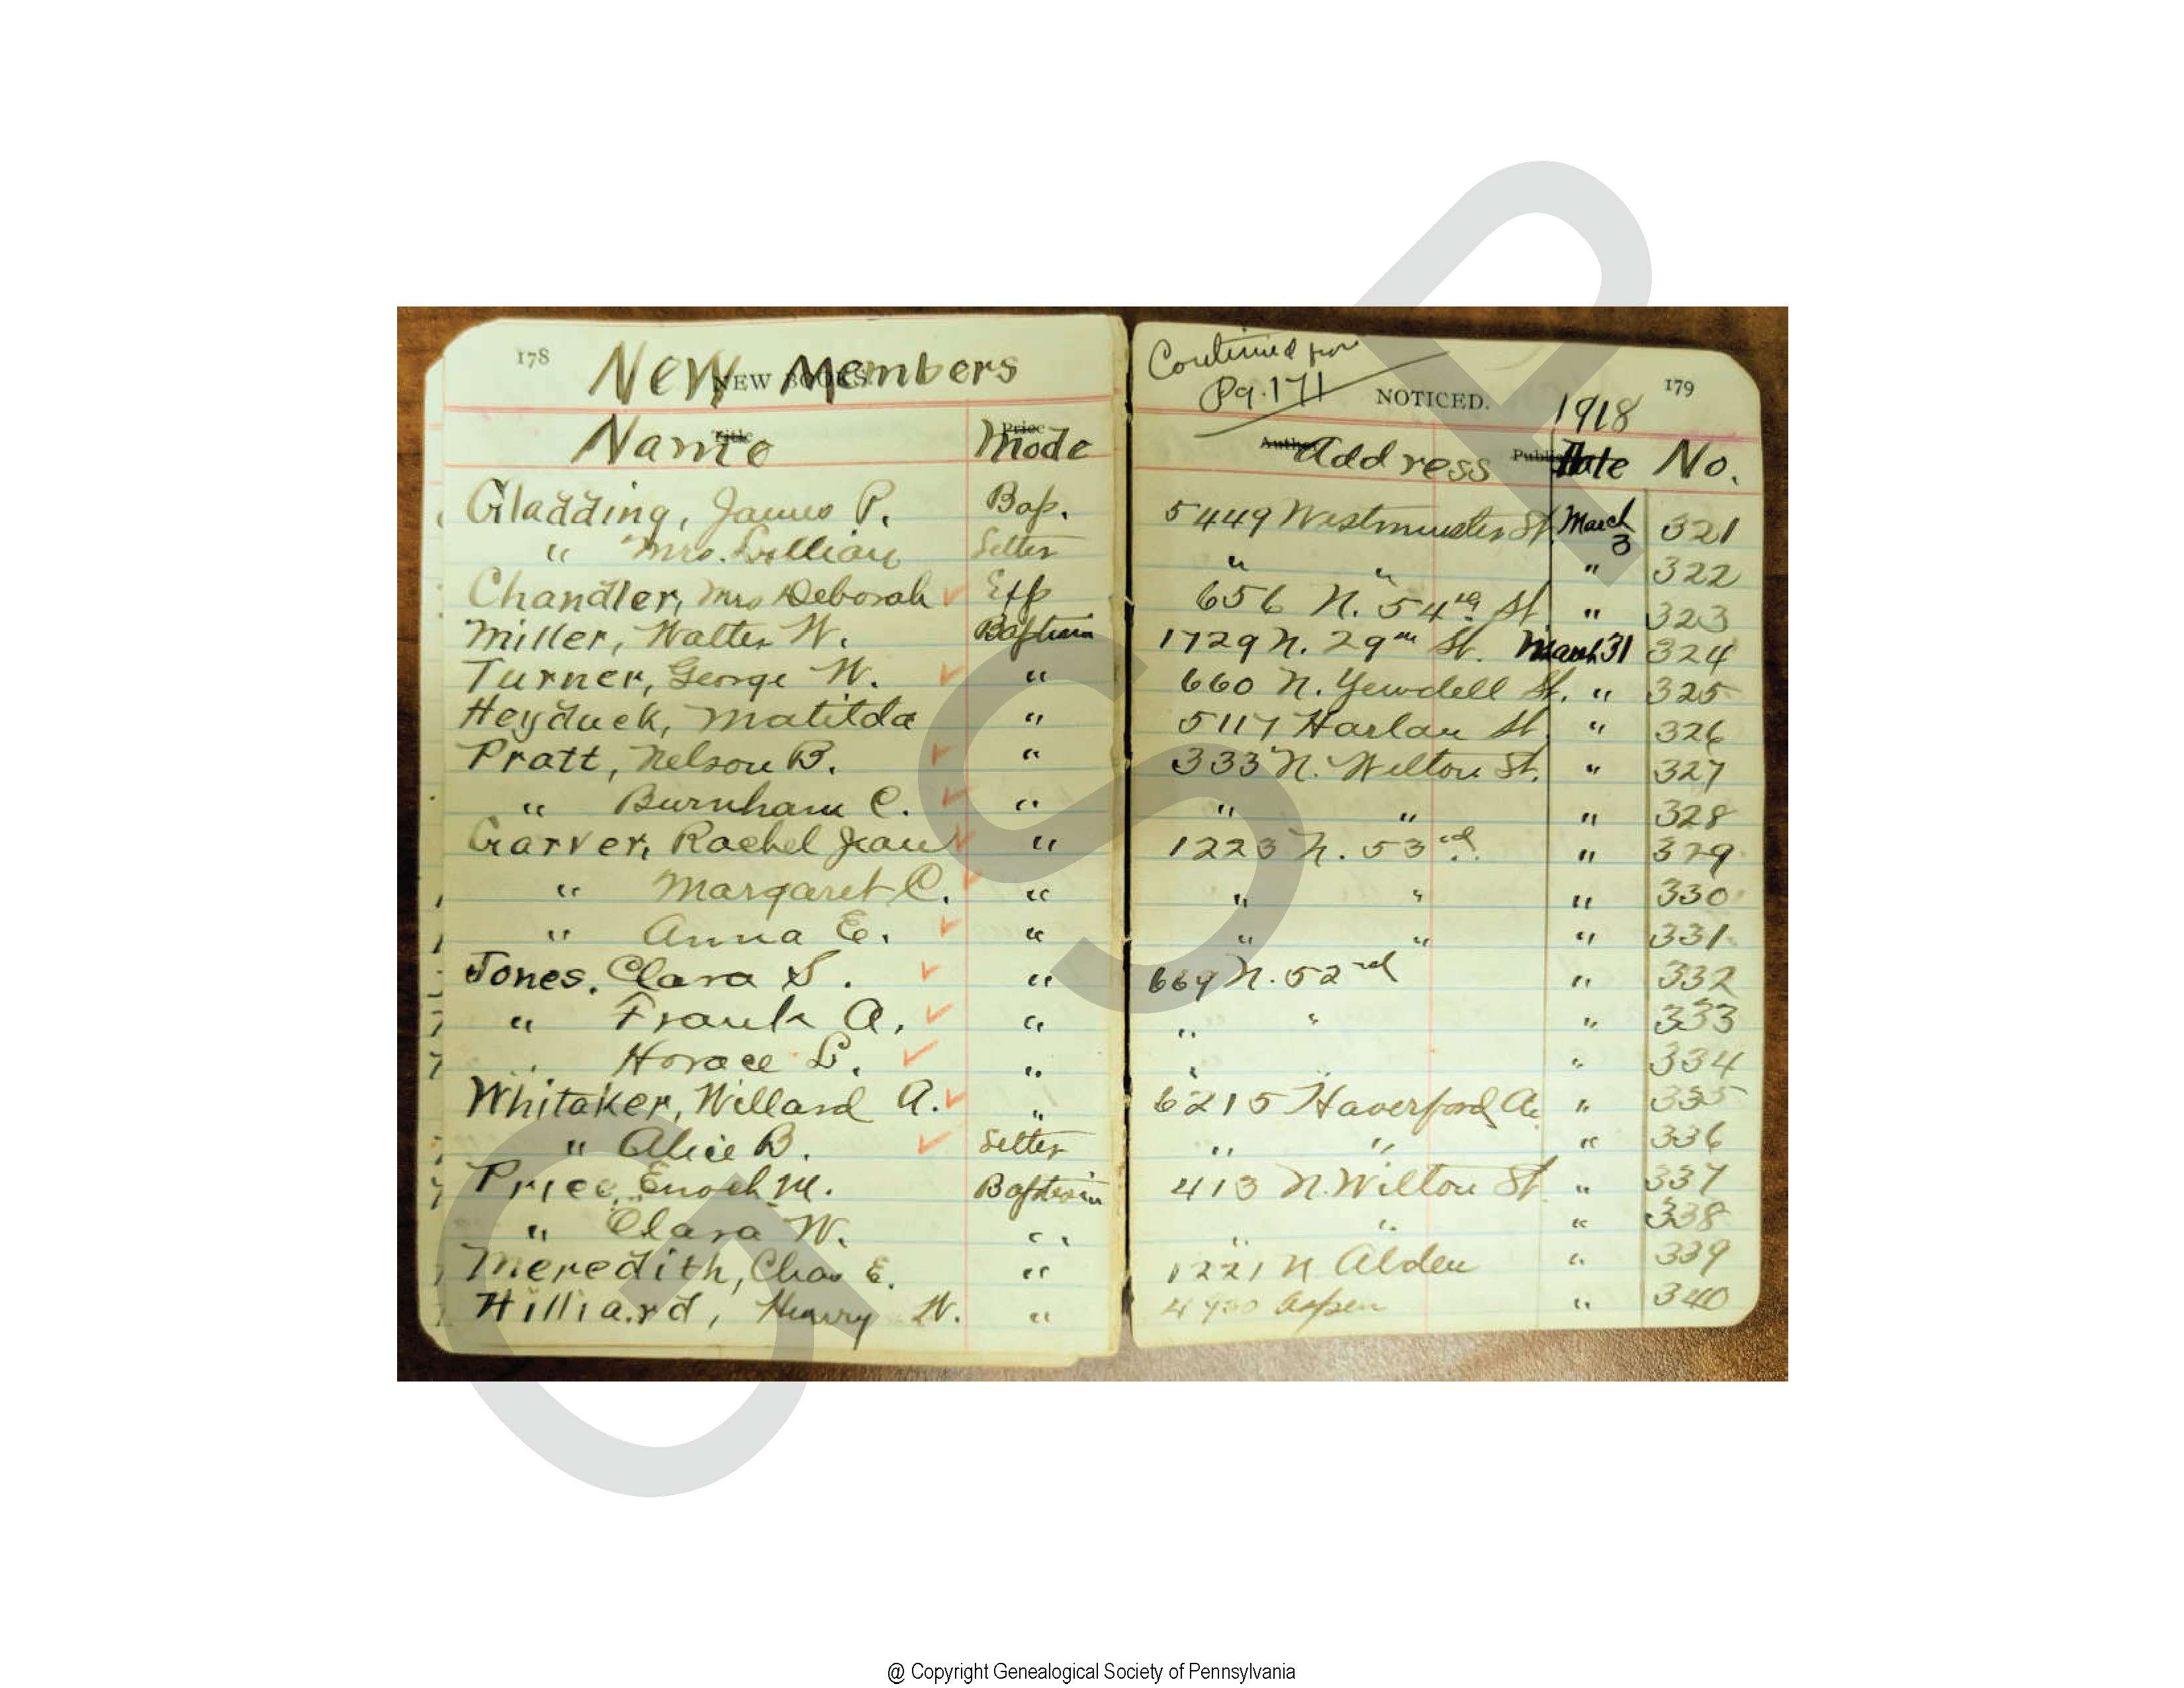 178
New Members
NEW BOOKS
Name Mode
Title Price
Gladding, James P. Bap.
" Mrs. Lillian Letter
Chandler, Mrs Deborah Exp
Miller, Walter W. Baptism
Turner, George W. "
Heyduck, Matilda "
Pratt, Nelson B. "
" Burnham C. "
Garver, Rachel Jean "
" Margaret C. "
" Anna E. "
Jones. Clara S. "
" Frank A. "
" Horace L. "
Whitaker, Willard A. "
" Alice B. Letter
Price, Enoch M. Baptism
" Clara W. "
Meredith, Chas E. "
Hilliard, Henry W. "
Continued from
Pg. 171
NOTICED.
179
1918
Address Date No.
5449 Westminster St. March 3 321
" " " 322
656 N. 54th St " 323
1729 N. 29th St. March 31 324
660 N. Yewdell St. " 325
5117 Harlan St " 326
333 N. Wilton St. " 327
" " " 328
1223 N. 53rd. " 329
" " " 330
" " " 331
669 N. 52nd " 332
" " " 333
" " " 334
6215 Haverford A. " 335
" " " 336
413 N. Wilton St " 337
" " " 338
1221 N Alden " 339
Aspen " 340
GSP
@ Copyright Genealogical Society of Pennsylvania